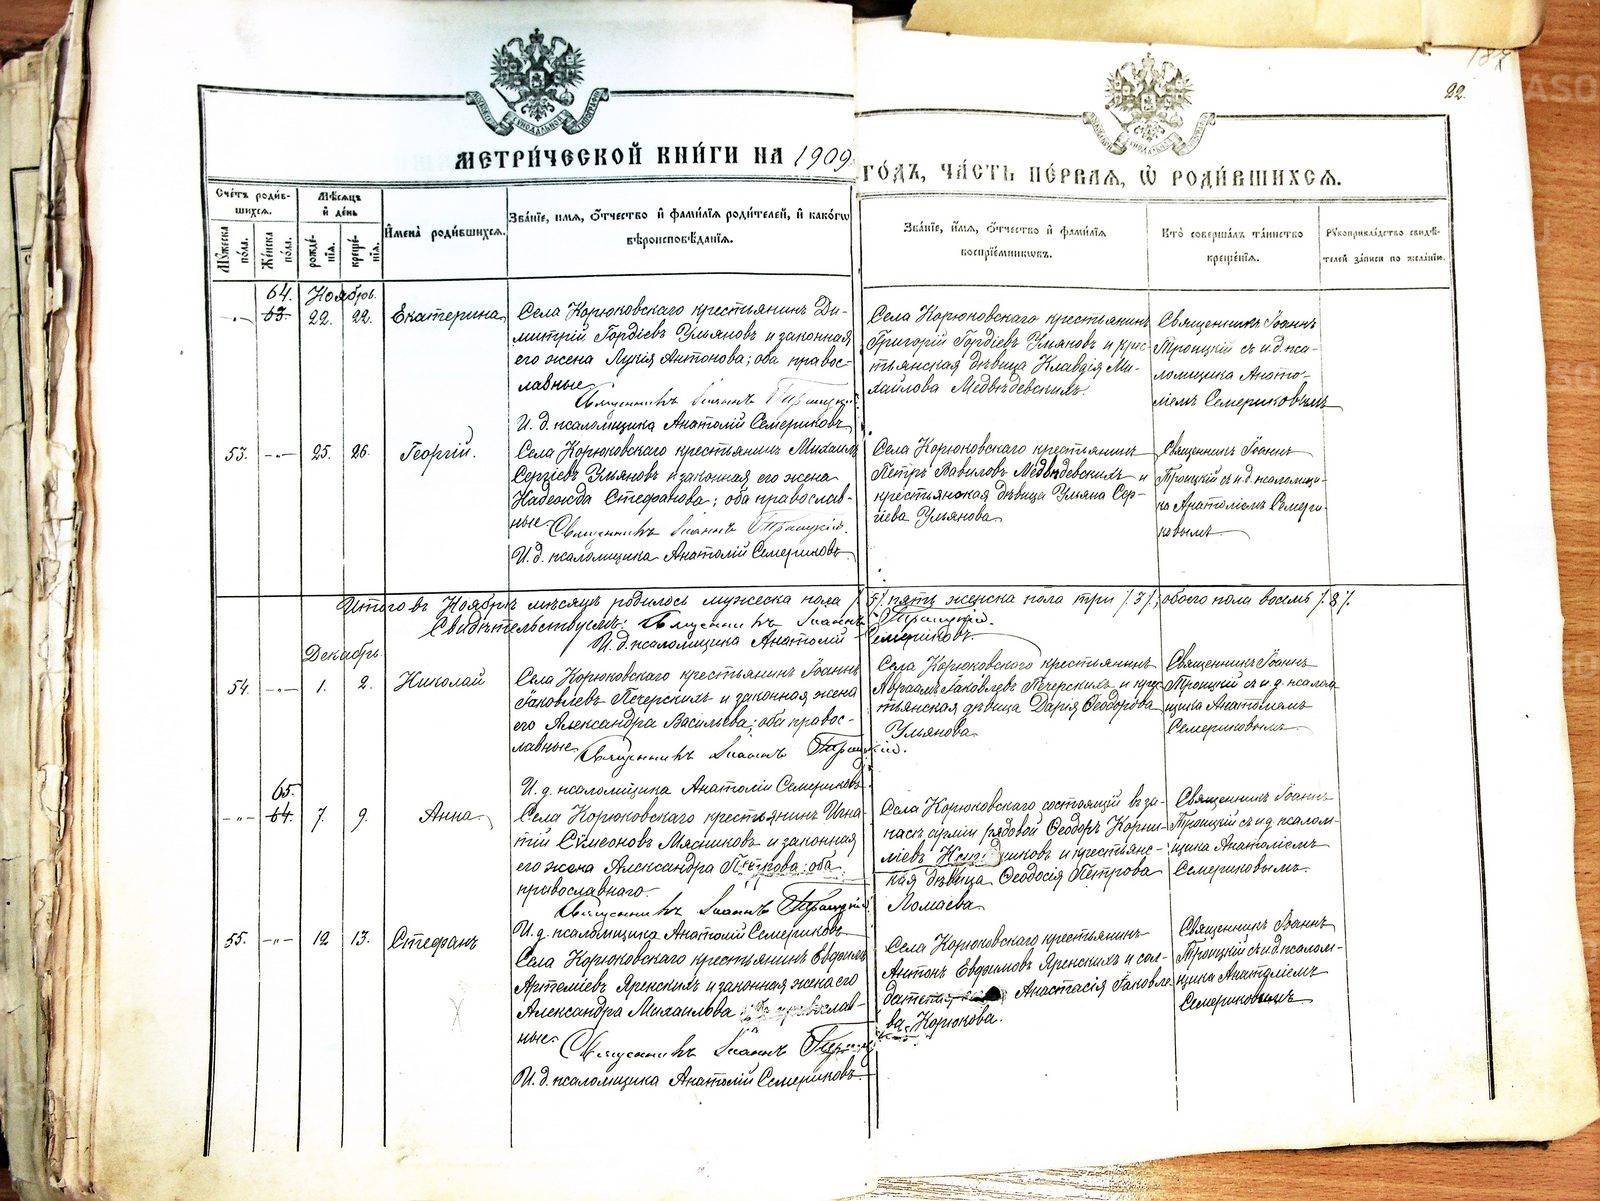 187
22.
МЕТРИ́ЧЕСКОЙ КНИ́ГИ НА 1909
ГО́ДЪ, ЧА́СТЬ ПЕ́РВАЯ, Ѡ РОДИ́ВШИХСЯ.
Сче́тъ роди́в-
шихся.
Мꙋ́жеска по́ла.
Же́нска по́ла.
Мѣ́сяцъ
и́ де́нь
рожде́-
нія.
креще́-
нія.
И́мена̀ роди́вшихся.
Зва́ніе, и́мя, ѻ́тчество и́ фами́лія роди́телей, и́ како́гѡ
вѣроисповѣ́данія.
Зва́ніе, и́мя, ѻ́тчество и́ фами́лія
воспріе́мникѡвъ.
Кто̀ соверша́лъ та́инство
креще́нія.
Рꙋкоприкла́дство свидѣ́-
телей за́писи по жела́нію.
64. Ноябрь.
63. 22. 22. Екатерина
Села Корюковскаго крестьянинъ Ди-
митрій Гордіевъ Ульяновъ и законная
его жена Лукія Антонова; оба правос-
лавные
Священникъ Іоаннъ Троицкій.
И. д. псаломщика Анатолій Семериковъ
Села Корюковскаго крестьянинъ
Григорій Гордіевъ Ульяновъ и крес-
тьянская дѣвица Клавдія Ми-
хайлова Медвѣдевскихъ.
Священникъ Іоаннъ
Троицкій съ и. д. пса-
ломщика Анато-
ліемъ Семериковымъ
53. -"- 25. 26. Георгій.
Села Корюковскаго крестьянинъ Михаилъ
Сергіевъ Ульяновъ и законная его жена
Надежда Стефанова; оба православ-
ные
Священникъ Іоаннъ Троицкій.
И. д. псаломщика Анатолій Семериковъ
Села Корюковскаго крестьянинъ
Петръ Вавиловъ Медвѣдевскихъ и
крестьянская дѣвица Ульяна Сер-
гіева Ульянова
Священникъ Іоаннъ
Троицкій съ и. д. псаломщи-
ка Анатоліемъ Семери-
ковымъ
Итого въ Ноябрѣ мѣсяцѣ родилось мужеска пола /5/ пять женска пола три /3/, обоего пола восемь /8/.
Свидѣтельствуемъ: Священникъ Іоаннъ Троицкій.
И. д. псаломщика Анатолій Семериковъ.
Декабрь.
54. -"- 1. 2. Николай
Села Корюковскаго крестьянинъ Іоаннъ
Іаковлевъ Печерскихъ и законная жена
его Александра Васильева; оба правос-
лавные
Священникъ Іоаннъ Троицкій.
И. д. псаломщика Анатолій Семериковъ
Села Корюковскаго крестьянинъ
Авраамъ Іаковлевъ Печерскихъ и крес-
тьянская дѣвица Дарія Ѳеодорова
Ульянова
Священникъ Іоаннъ
Троицкій съ и. д. псалом-
щика Анатоліемъ
Семериковымъ
65.
-"- 64. 7. 9. Анна
Села Корюковскаго крестьянинъ Игна-
тій Симеоновъ Мясниковъ и законная
его жена Александра Петрова; оба
православнаго.
Священникъ Іоаннъ Троицкій
И. д. псаломщика Анатолій Семериковъ
Села Корюковскаго состоящій въ за-
пасѣ арміи рядовой Ѳеодоръ Корни-
ліевъ и крестьянс-
кая дѣвица Ѳеодосія Петрова
Ломаева
Священникъ Іоаннъ
Троицкій съ и д псалом-
щика Анатоліемъ
Семериковымъ.
55. -"- 12 13. Стефанъ
Села Корюковскаго крестьянинъ Евфимъ
Артеміевъ Яренскихъ и законная жена его
Александра Михаилова оба православ-
ные
Священникъ Іоаннъ Троицкій
И. д. псаломщика Анатолій Семериковъ.
Села Корюковскаго крестьянинъ
Антонъ Евфимовъ Яренскихъ и сол-
датская Анастасія Іаковле-
ва Корюкова.
Священникъ Іоаннъ
Троицкій съ и д псалом-
щика Анатоліемъ
Семериковымъ